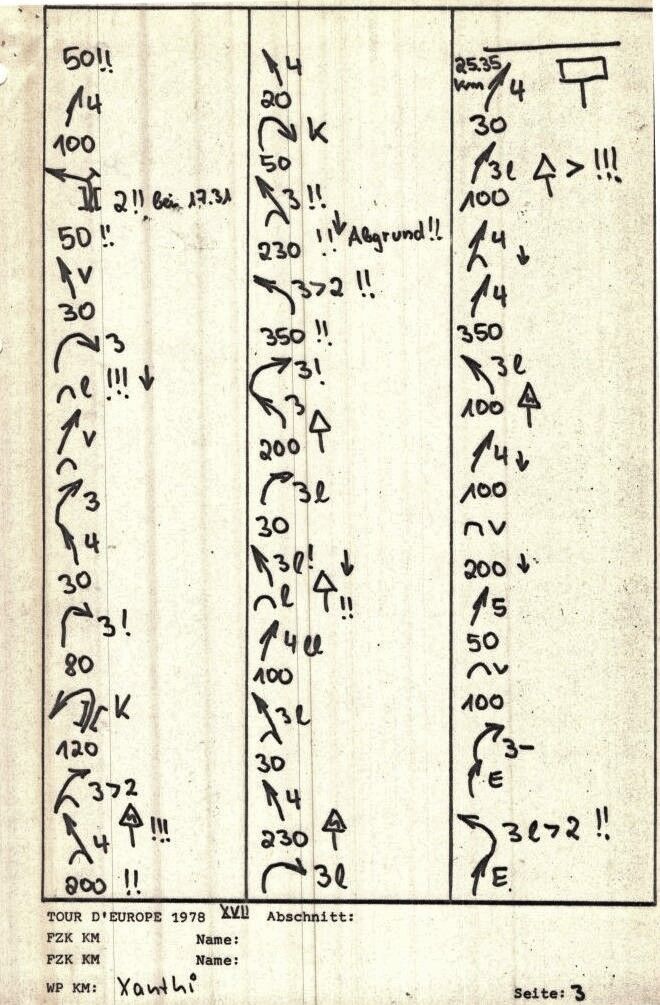 50!!
4
100
2!! bei 17.31
50!!
v
30
3
l !!!
v
3
4
30
3!
80
K
120
3>2
4 !!!
200 !!
4
20
K
50
3!!
230 !! Abgrund!!
3>2 !!
350 !!
3!
3
200
3l
30
3l!
l !!
4 ll
100
3l
30
4
230
3l
25.35
km 4
30
3l > !!!
100
4
4
350
3l
100
4
100
v
200
5
50
v
100
3-
E
3l>2 !!
E
TOUR D'EUROPE 1978 XVII Abschnitt:
FZK KM Name:
FZK KM Name:
WP KM: Xanthi
Seite: 3